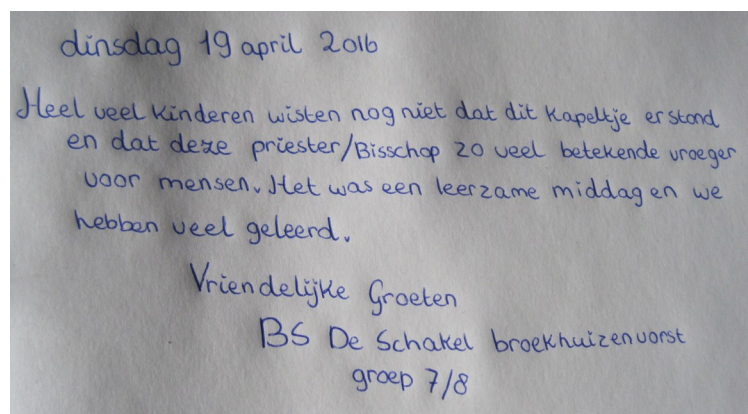 dinsdag 19 april 2016
Heel veel kinderen wisten nog niet dat dit Kapeltje er stond
en dat deze priester/Bisschop zo veel betekende vroeger
voor mensen. Het was een leerzame middag en we
hebben veel geleerd.
Vriendelijke Groeten
BS De Schakel broekhuizenvorst
groep 7/8